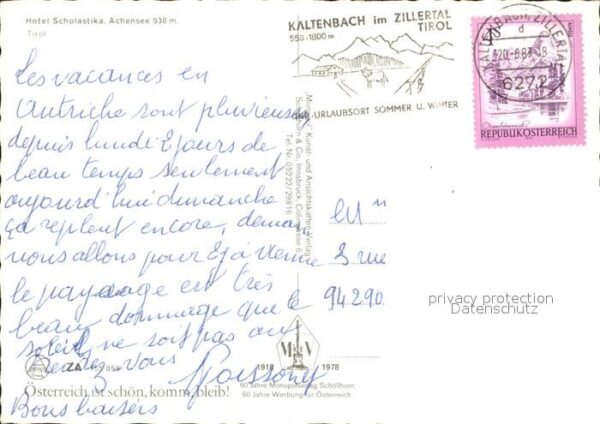 Hotel Scholastika, Achensee 930 m,
Tirol
KALTENBACH im ZILLERTAL
TIROL
558-1800m
URLAUBSORT SOMMER U. WINTER
KALTENBACH, ZILLERTAL
d
20.-6.83-18
6272
REPUBLIK ÖSTERREICH
Les vacances en
Autriche sont plurieuse
depuis lundi 2 jours de
beau temps seulement
aujourd'hui dimanche
ça repleut encore, demain
nous allons pour 2 j à Vienne
le paysage est très
beau dommage que le
soleil ne soit pas au
rendez vous
Bons baisers
"Monopol" Kunst- und Ansichtskarten-Verlag
Schöllhorn & Co., Innsbruck,
Tel. Nr. 05222/29816
3 rue
94290
privacy protection
Datenschutz
ZA
MV
1918 1978
60 Jahre Monopolverlag Schöllhorn
60 Jahre Werbung für Österreich
Österreich ist schön, komm, bleib!